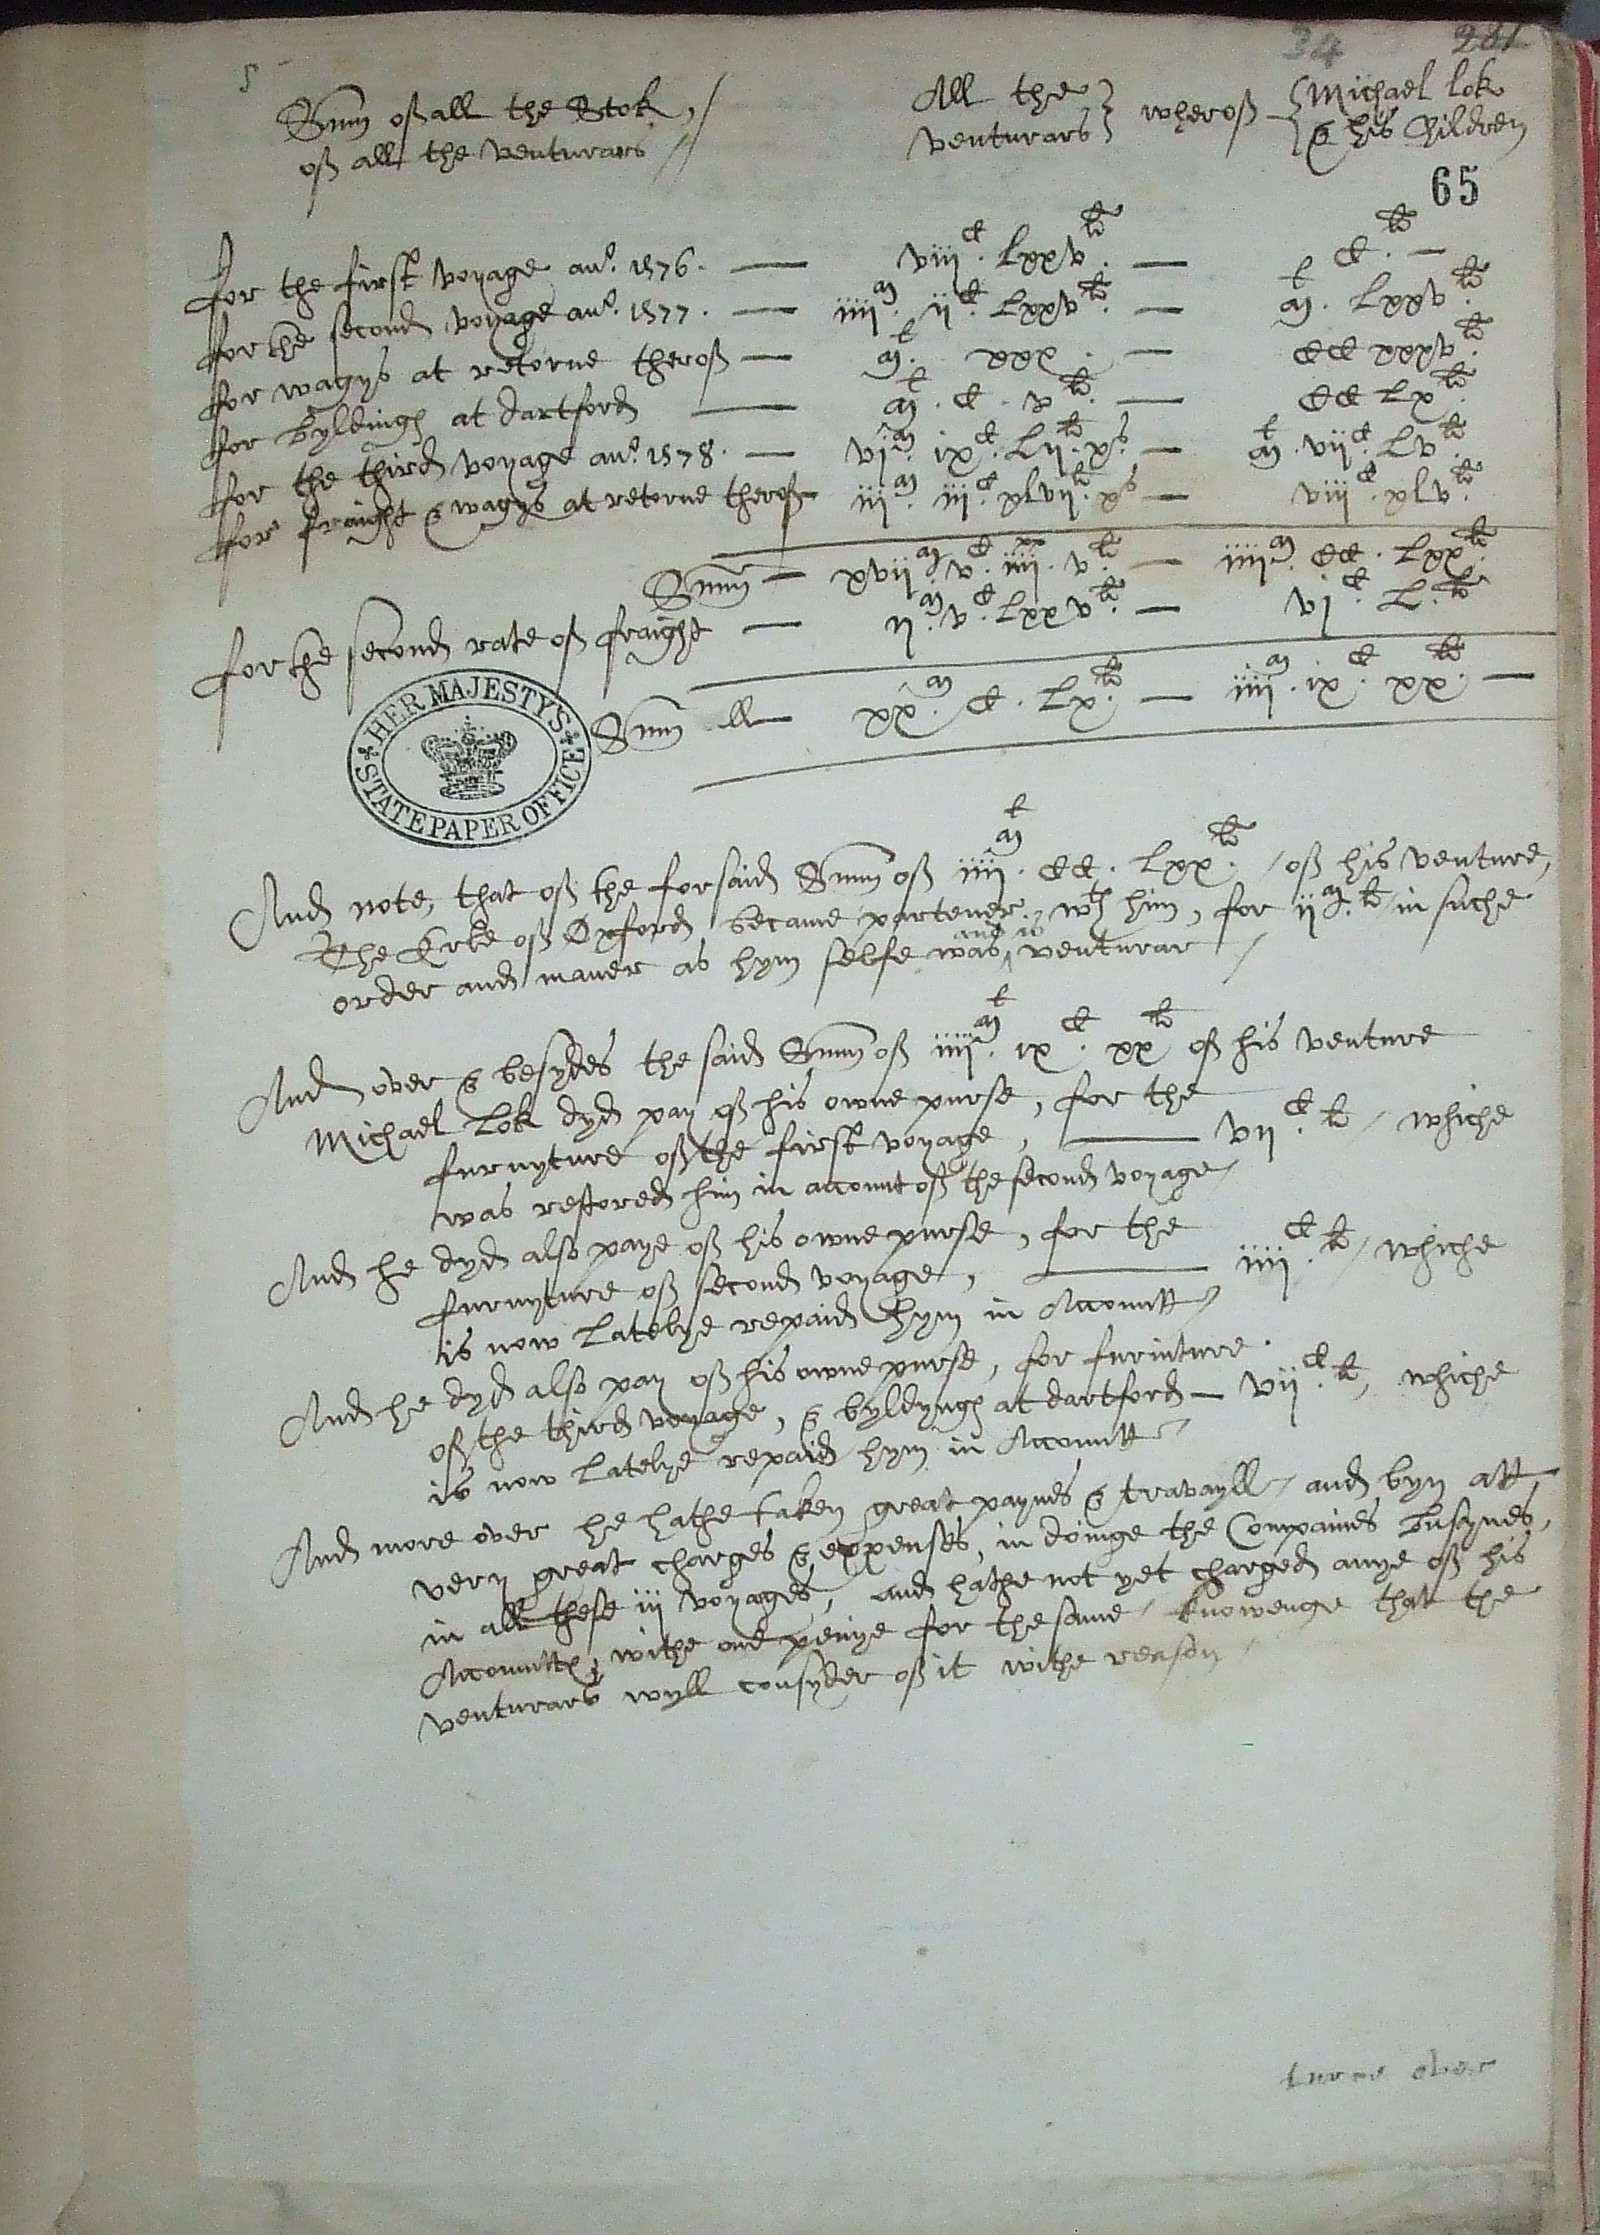 34 201
Sum of all the Stok,
of all the venturars
All the
venturars } wherof { Michael Lok
& his Children
65
for the first voyage anº. 1576. — viiiᶜ. lxxv£. — C.£ —
for the second voyage anº. 1577. — iiiiᵐ. iiᶜ. lxxv£. — Mˡ. lxxv£.
for wagys at retorne therof — Mˡ. xxx. — CC xxxv£.
for byldings at dartford — Mˡ. C. v£. — CC lx£.
for the third voyage anº. 1578. — viᵐ. ixᶜ. Lii£. xˢ. — Mˡ. viiᶜ. Lv£.
for fraight & wagys at retorne therof — iiiᵐ. iiiᶜ. xlvii£. xˢ — viiiᶜ. xlv£.
Sum — xviiᵐ. vᶜ. iiiiˣˣ. v£. — iiiiᵐ. CC. Lxx£.
for the second rate of fraight — iiᵐ. vᶜ. lxxv£. — viᶜ. L.£
Sum all — xxᵐ. C. Lx£. — iiiiᵐ. ixᶜ. xx£. —
HER MAJESTY'S STATE PAPER OFFICE
And note, that of the forsaid Sum of iiiiᵐˡ. CC. lxx£. / of his venture,
The Erle of Oxford became partener wᵗʰ him, for iiᵐ.£ / in suche
order and maner as hym selfe was, venturar /
And over & besydes the said Sum of iiiiᵐˡ. ixᶜ. xx£ of his venture
Michael Lok dyd pay of his owne purse, for the
furnyture of the first voyage, — viiᶜ.£ / whiche
was restored him in account of the second voyage /
And he dyd also paye of his owne purse, for the
furnyture of second voyage, — iiiiᶜ.£ / whiche
is now latelye repaid hym in Accountt /
And he dyd also pay of his owne purse, for furniture
of the third voyage, & byldyngs at dartford — viiᶜ.£, whiche
is now latelye repaid hym in Accountt /
And more over he hathe taken great paynes & travayll / and byn att
very great charges & expenses, in doinge the Companies busynes,
in all these iii voyages, and hathe not yet charged anye of his
Accountts, withe one penye for the same / knowenge that the
venturars wyll consyder of it withe reason /
turne over